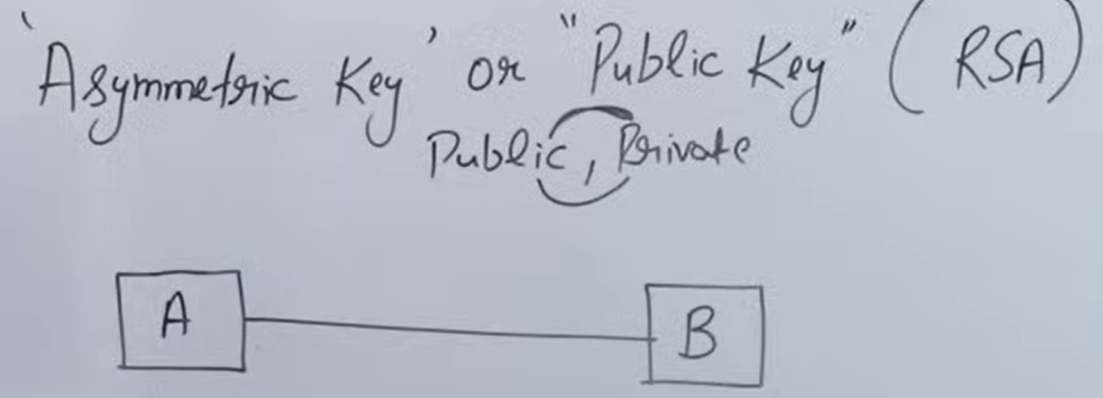 'Asymmetric Key' or "Public Key" (RSA)
Public, Private
A B